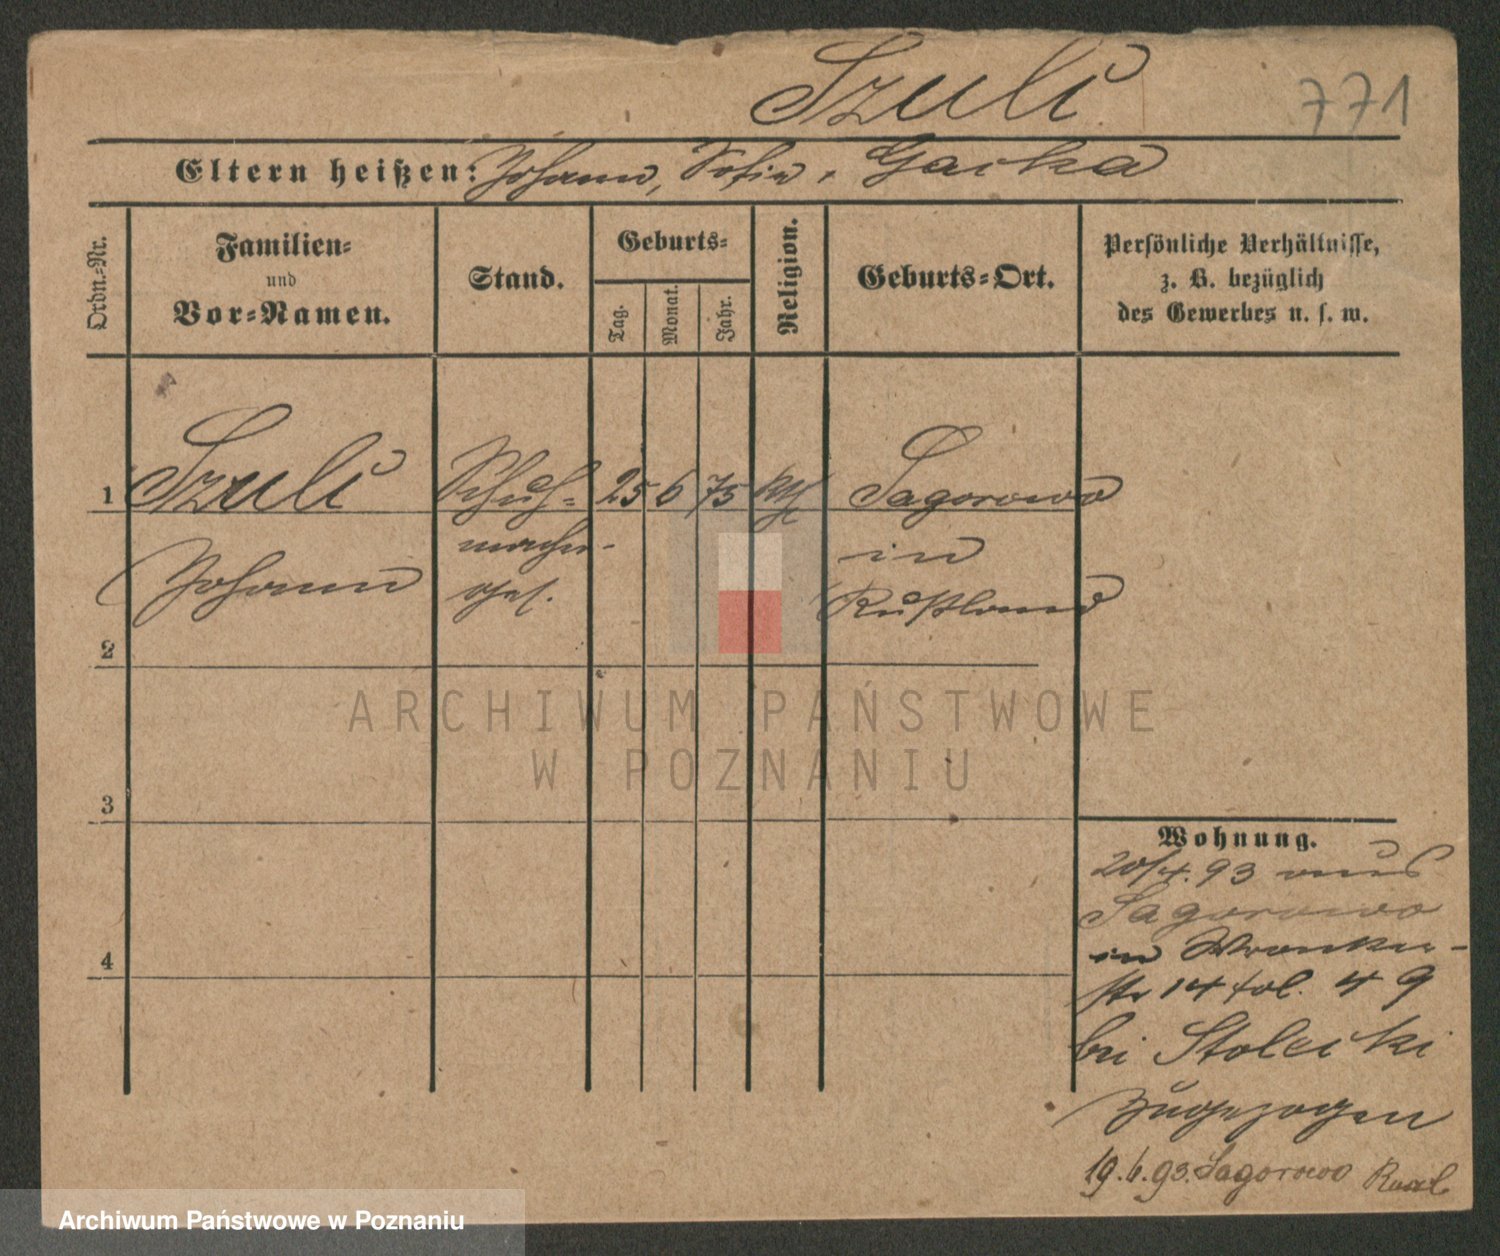 Szulc
771
Eltern heißen: Johann, Sofie, Gacka
Ordn.-Nr.
Familien-
und
Vor-Namen.
Stand.
Geburts-
Tag.
Monat.
Jahr.
Religion.
Geburts-Ort.
Persönliche Verhältnisse,
z. B. bezüglich
des Gewerbes u. s. w.
1 Szulc Schuh- 25 6 75 kth Sagorowo
macher- in
Johann ges. Rußland
2
3
4
Wohnung.
20/4. 93 aus
Sagorowo
in Wronker-
str 14 fol. 49
bei Stolecki
zugezogen
19.6.93. Sagorowo
ARCHIWUM PAŃSTWOWE
W POZNANIU
Archiwum Państwowe w Poznaniu